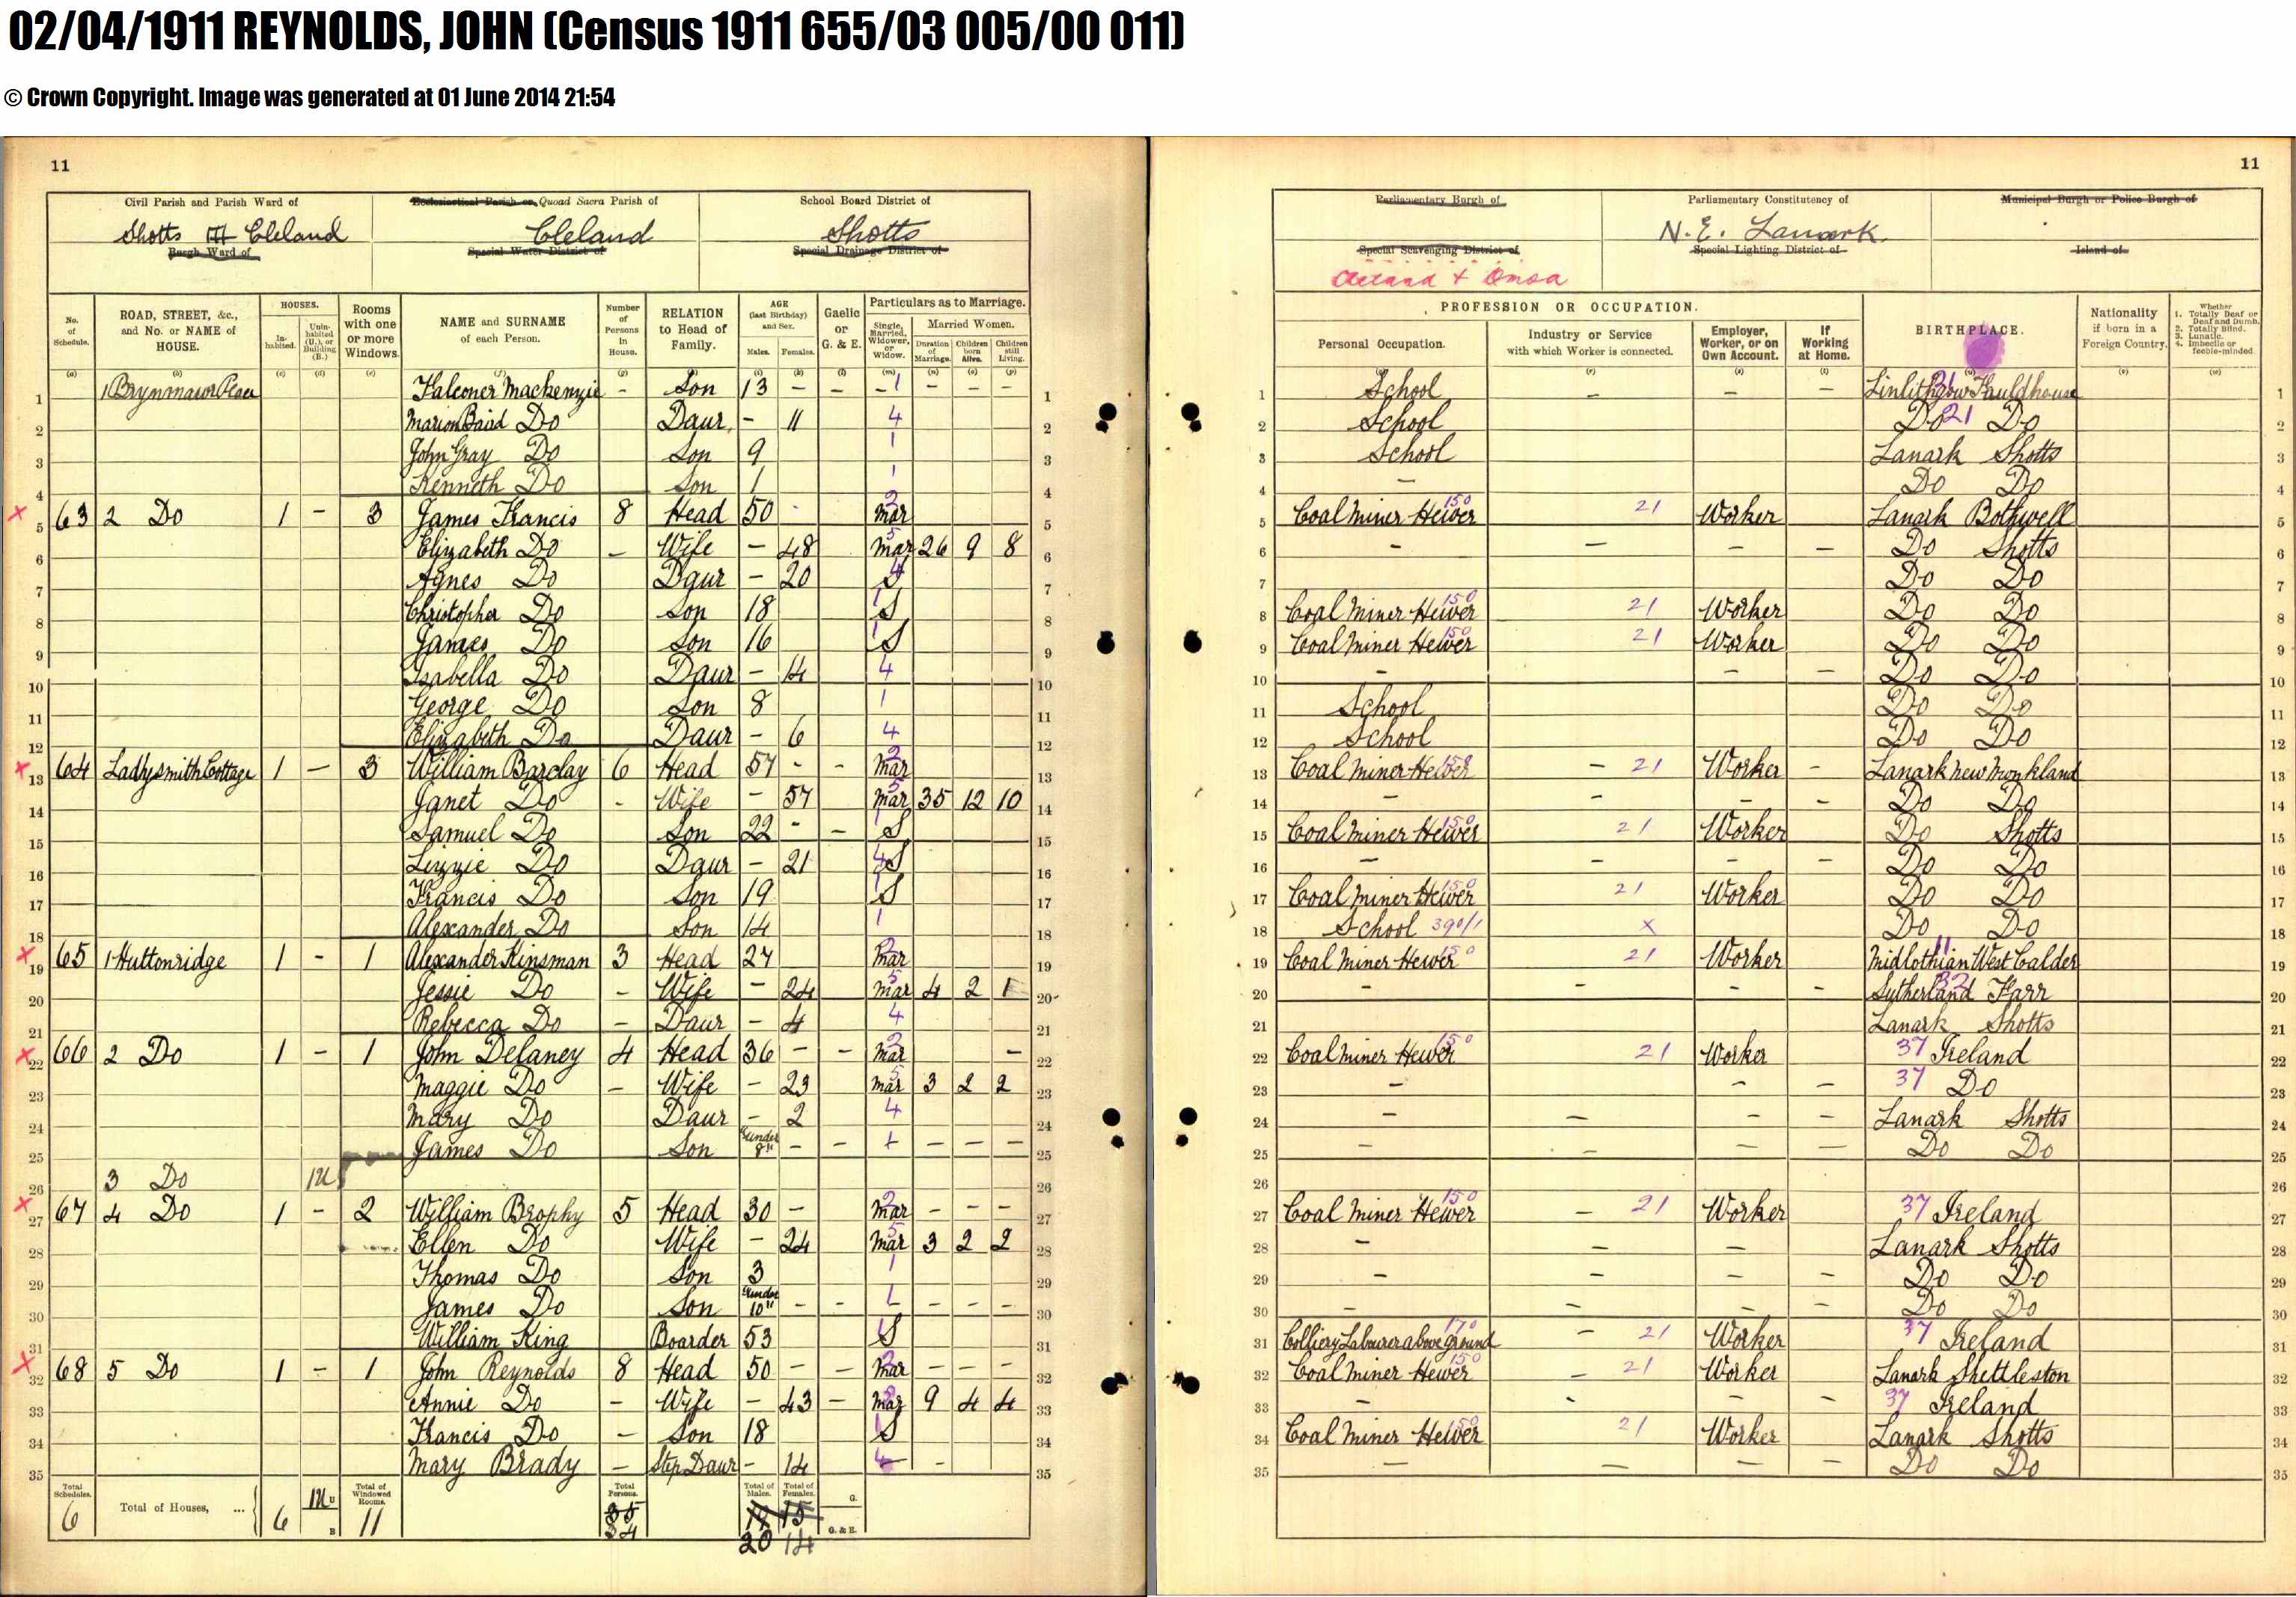 02/04/1911 REYNOLDS, JOHN (Census 1911 655/03 005/00 011)
© Crown Copyright. Image was generated at 01 June 2014 21:54
11 11
Civil Parish and Parish Ward of Ecclesiastical Parish or Quoad Sacra Parish of School Board District of Parliamentary Burgh of Parliamentary Constitutency of Municipal Burgh or Police Burgh of
Shotts Cleland Cleland Shotts N. E. Lanark.
Burgh Ward of Special Water District of Special Drainage District of Special Scavenging District of Special Lighting District of Island of
No. of Schedule. ROAD, STREET, &c., and No. or NAME of HOUSE. HOUSES. Inhabited. Uninhabited (U.), or Building (B.) Rooms with one or more Windows. NAME and SURNAME of each Person. Number of Persons in House. RELATION to Head of Family. AGE (last Birthday) and Sex. Males. Females. Gaelic or G. & E. Particulars as to Marriage. Single, Married, Widower, or Widow. Married Women. Duration of Marriage. Children born Alive. Children still Living.
PROFESSION OR OCCUPATION. Personal Occupation. Industry or Service with which Worker is connected. Employer, Worker, or on Own Account. If Working at Home. BIRTHPLACE. Nationality if born in a Foreign Country. Whether 1. Totally Deaf or Deaf and Dumb. 2. Totally Blind. 3. Lunatic. 4. Imbecile or feeble-minded.
1 1 Brynmawr Place Falconer Mackenzie - Son 13 - - - 1 - - - 1 School - - - Linlithgow Fauldhouse 1
2 Marion Baird Do Daur. - 11 4 2 School Do 21 Do 2
3 John Gray Do Son 9 1 3 School Lanark Shotts 3
4 Kenneth Do Son 1 1 4 - Do Do 4
5 63 2 Do 1 - 3 James Francis 8 Head 50 - Mar 2 5 Coal Miner Hewer 150 21 Worker Lanark Bothwell 5
6 Elizabeth Do - Wife - 48 Mar 5 26 9 8 6 - - - - Do Shotts 6
7 Agnes Do Daur - 20 S 4 7 Do Do 7
8 Christopher Do Son 18 S 1 8 Coal Miner Hewer 150 21 Worker Do Do 8
9 James Do Son 16 S 1 9 Coal Miner Hewer 150 21 Worker Do Do 9
10 Isabella Do Daur - 14 4 10 - - - Do Do 10
11 George Do Son 8 1 11 School Do Do 11
12 Elizabeth Do Daur - 6 4 12 School Do Do 12
13 64 Ladysmith Cottage 1 - 3 William Barclay 6 Head 57 - - Mar 2 13 Coal Miner Hewer 150 - 21 Worker - Lanark New Monkland 13
14 Janet Do - Wife - 57 Mar 5 35 12 10 14 - - - - Do Do 14
15 Samuel Do Son 22 - - S 1 15 Coal Miner Hewer 150 21 Worker Do Shotts 15
16 Lizzie Do Daur - 21 4 S 16 - - - - Do Do 16
17 Francis Do Son 19 S 1 17 Coal Miner Hewer 150 21 Worker Do Do 17
18 Alexander Do Son 14 1 18 School 390/1 X Do Do 18
19 65 1 Huttonridge 1 - 1 Alexander Kinsman 3 Head 27 Mar 2 19 Coal Miner Hewer 150 21 Worker Midlothian West Calder 11 19
20 Jessie Do - Wife - 24 Mar 5 4 2 1 20 - - - - Sutherland Farr 32 20
21 Rebecca Do - Daur - 4 4 21 Lanark Shotts 21
22 66 2 Do 1 - 1 John Delaney 4 Head 36 - - Mar 2 - 22 Coal Miner Hewer 150 21 Worker 37 Ireland 22
23 Maggie Do - Wife - 23 Mar 5 3 2 2 23 - - - 37 Do 23
24 Mary Do Daur - 2 4 24 - - - - Lanark Shotts 24
25 James Do Son under 8m - - 1 - - - 25 - - - - Do Do 25
26 3 Do 1U 26 26 26
27 67 4 Do 1 - 2 William Brophy 5 Head 30 - Mar 2 - - - 27 Coal Miner Hewer 150 - 21 Worker 37 Ireland 27
28 Ellen Do Wife - 24 Mar 5 3 2 2 28 - - - Lanark Shotts 28
29 Thomas Do Son 3 1 29 - - - - Do Do 29
30 James Do Son under 10m - - 1 - - - 30 - - - - Do Do 30
31 William King Boarder 53 S 1 31 Colliery Labourer above ground 170 - 21 Worker 37 Ireland 31
32 68 5 Do 1 - 1 John Reynolds 8 Head 50 - - Mar 2 - - - 32 Coal Miner Hewer 150 - 21 Worker Lanark Shettleston 32
33 Annie Do - Wife - 43 - Mar 9 4 4 33 - - - - 37 Ireland 33
34 Francis Do - Son 18 S 1 34 Coal Miner Hewer 150 21 Worker Lanark Shotts 34
35 Mary Brady - Step Daur - 14 4 - 35 - - - - Do Do 35
Total Schedules. 6 Total of Houses, ... 6 1U U B Total of Windowed Rooms. 11 Total Persons. 35 34 Total of Males. 20 Total of Females. 15 14 G. G. & E.